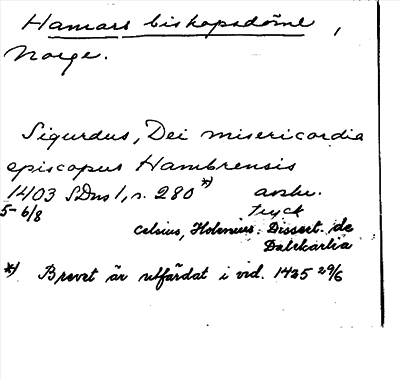 Hamars biskopsdöme,
Norge.
Sigurdus, Dei misericordia
episcopus Hambrensis
1403 SDns 1, s. 280 *) avskr.
5-6/8 Tryck
Celsius, Holenius: Dissert. de
Dalekarlia
*) Brevet är utfärdat i vid. 1425 29/6